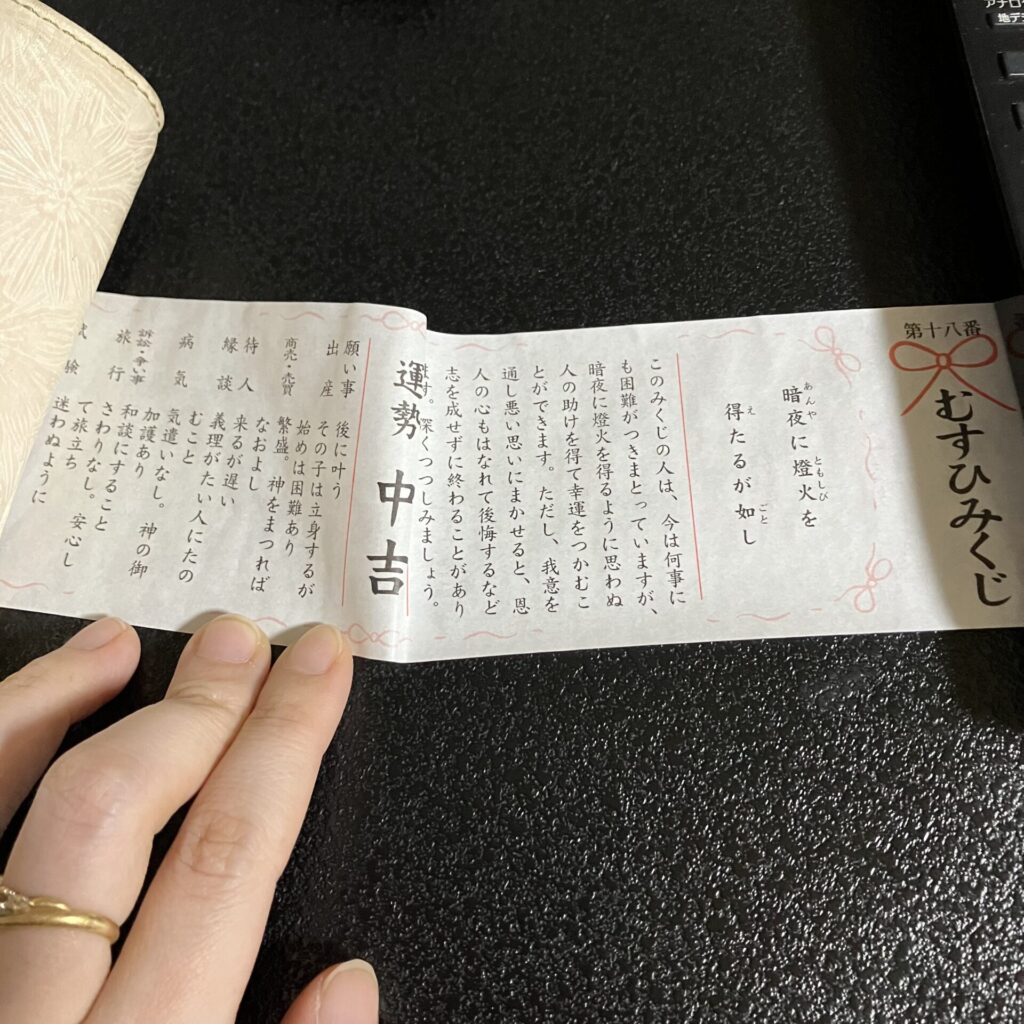 アナロ
地デ
第十八番
むすひみくじ
あんや ともしび
暗夜に燈火を
え ごと
得たるが如し
このみくじの人は、今は何事に
も困難がつきまとっていますが、
暗夜に燈火を得るように思わぬ
人の助けを得て幸運をつかむこ
とができます。ただし、我意を
通し悪い思いにまかせると、恩
人の心もはなれて後悔するなど
志を成せずに終わることがあり
ます。深くつつしみましょう。
運勢 中吉
願い事 後に叶う
出産 その子は立身するが
始めは困難あり
商売・売買 繁盛。神をまつれば
なおよし
待人 来るが遅い
縁談 義理がたい人にたの
むこと
病気 気遣いなし。神の御
加護あり
訴訟・争い事 和談にすること
旅行 さわりなし。安心し
て旅立ち
試験 迷わぬように